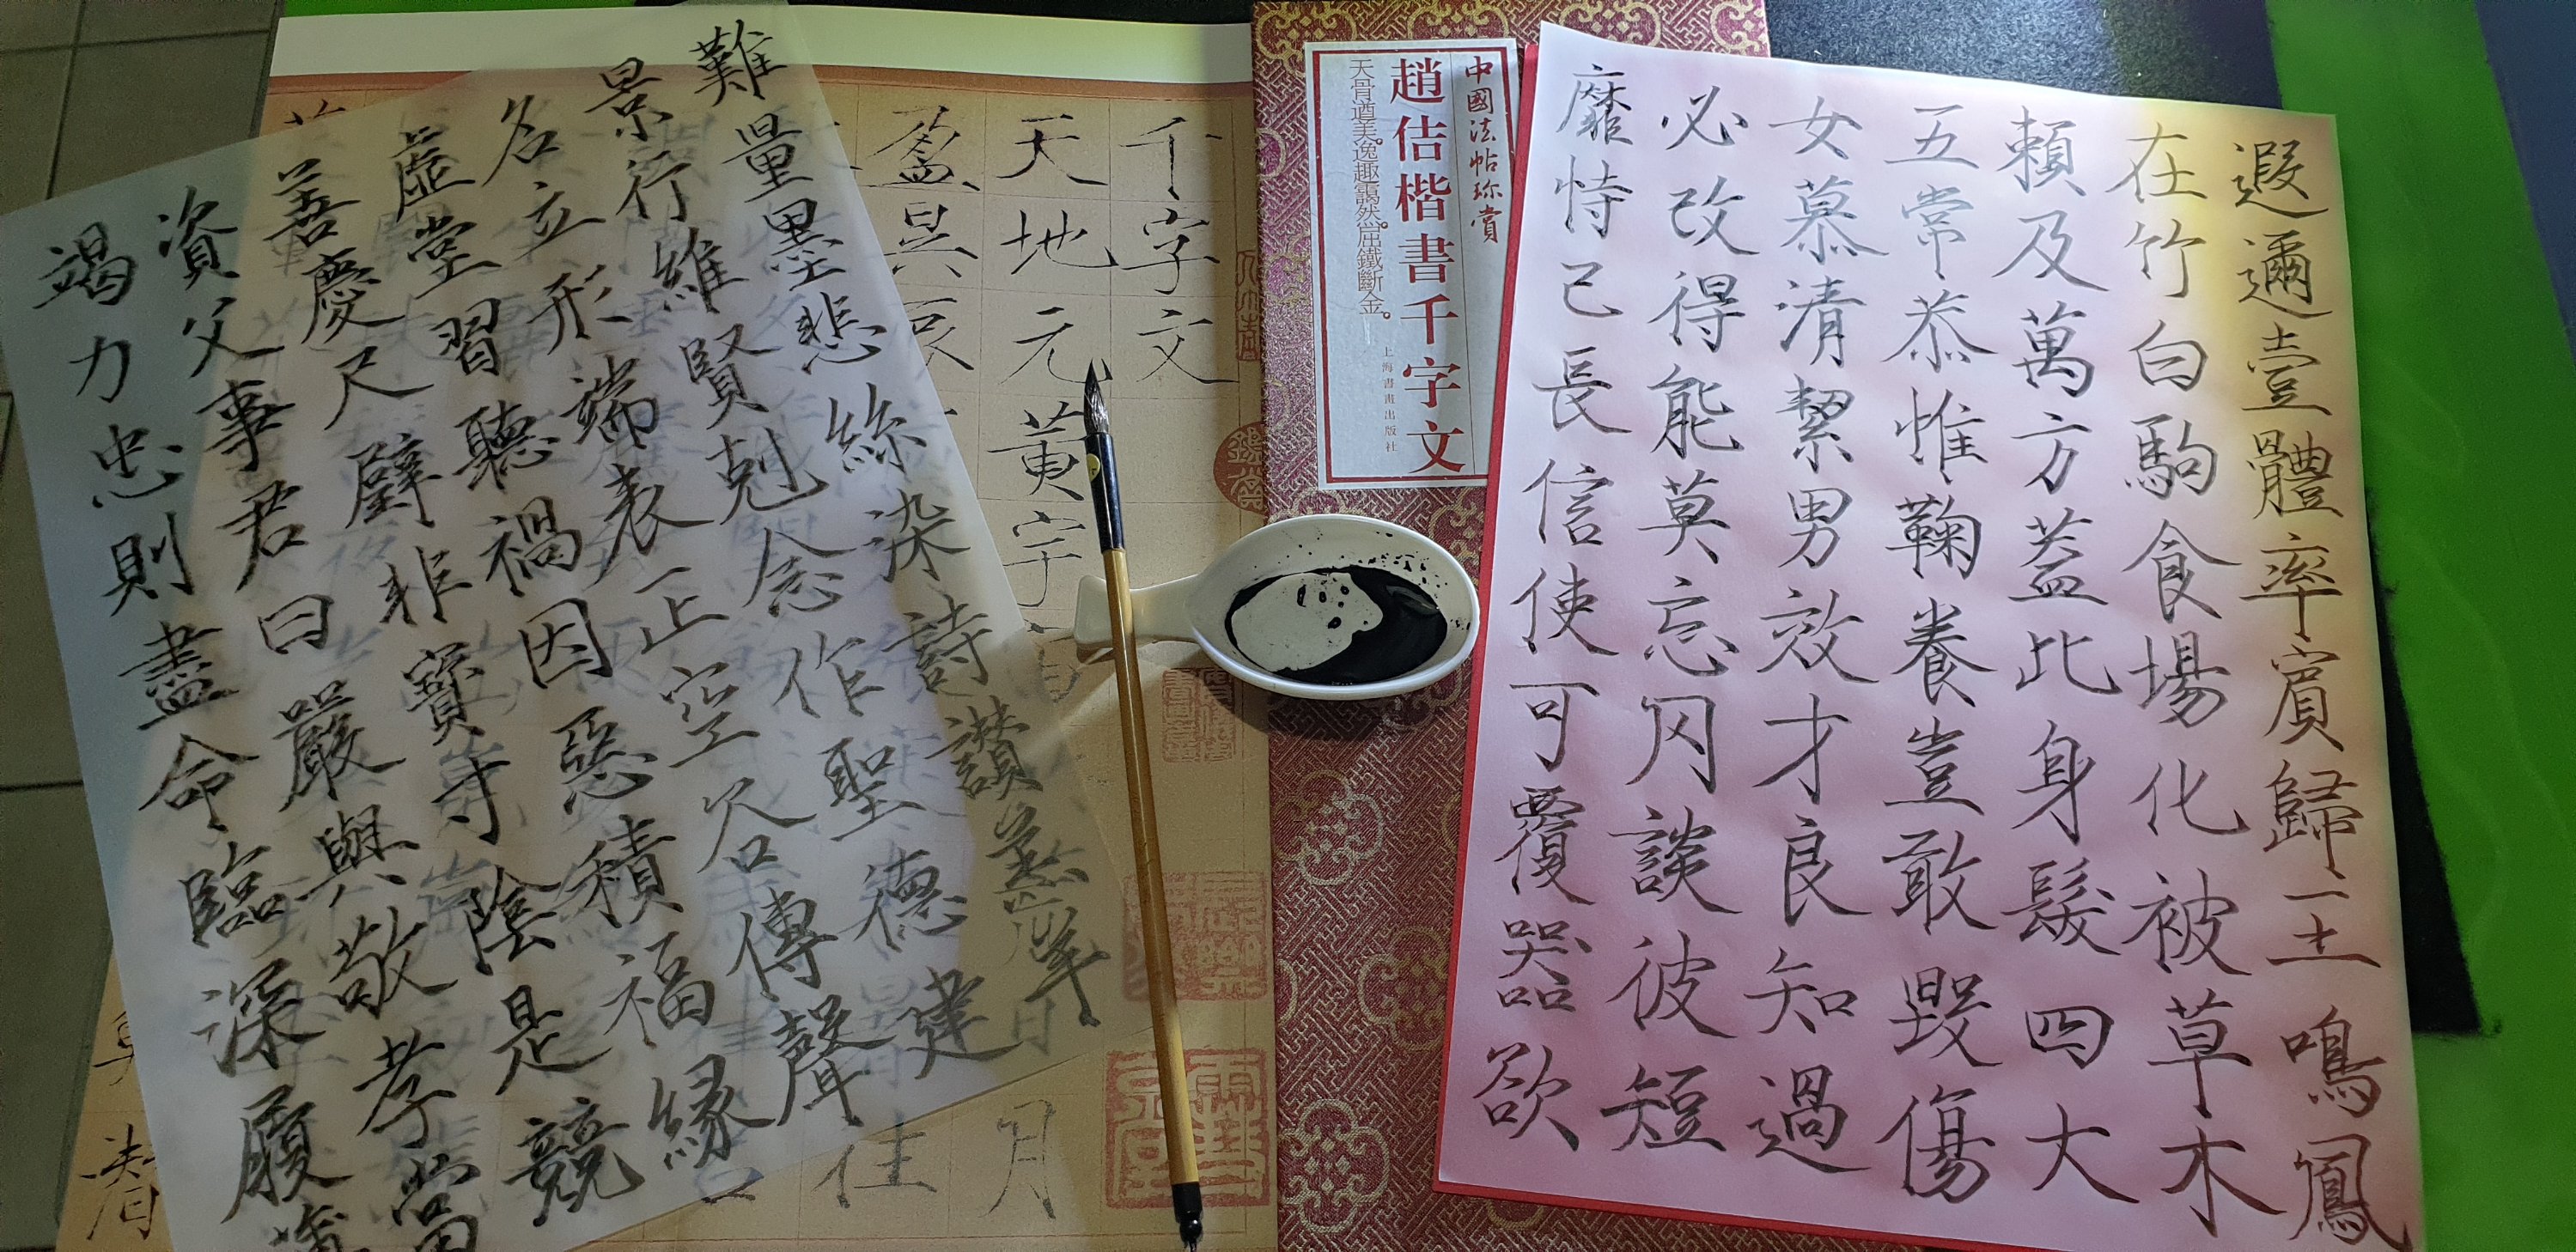 遐邇壹體率賓歸王鳴鳳
在竹白駒食場化被草木
賴及萬方蓋此身髮四大
五常恭惟鞠養豈敢毀傷
女慕清絜男效才良知過
必改得能莫忘罔談彼短
靡恃己長信使可覆器欲
中國法帖珍賞
趙佶楷書千字文
天骨遒美。逸趣靄然。屈鐵斷金。
上海書畫出版社
千字文
天地元黃宇
月
盈昃辰
往
難量墨悲絲染詩讚羔羊
景行維賢剋念作聖德建
名立形端表正空谷傳聲
虛堂習聽禍因惡積福緣
善慶尺璧非寶寸陰是競
資父事君曰嚴與敬孝當
竭力忠則盡命臨深履薄